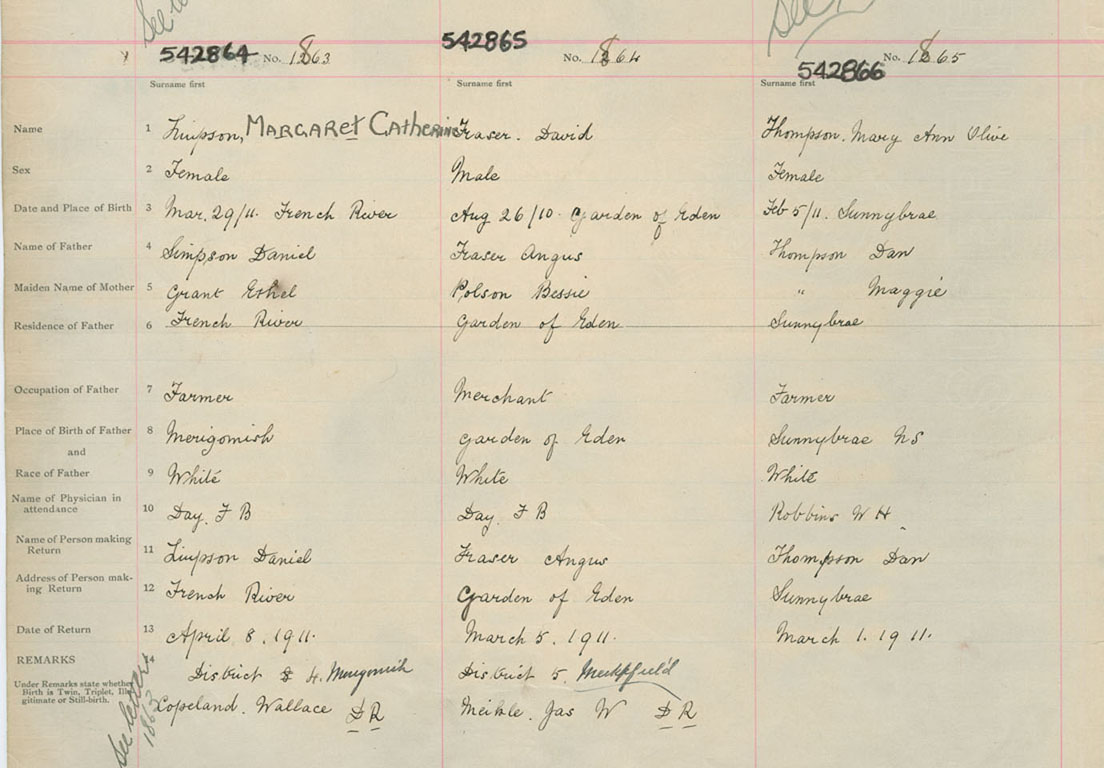 See
See
542864 No. 1863
542865 No. 1864
542866 No. 1865
Surname first Surname first Surname first
Name 1 Simpson, MARGARet Catherine Fraser. David Thompson. Mary Ann Olive
Sex 2 Female Male Female
Date and Place of Birth 3 Mar. 29/11. French River Aug 26/10. Garden of Eden Feb 5/11. Sunnybrae
Name of Father 4 Simpson Daniel Fraser Angus Thompson Dan
Maiden Name of Mother 5 Grant Ethel Polson Bessie " Maggie
Residence of Father 6 French River Garden of Eden Sunnybrae
Occupation of Father 7 Farmer Merchant Farmer
Place of Birth of Father 8 Merigomish Garden of Eden Sunnybrae NS
and
Race of Father 9 White White White
Name of Physician in
attendance 10 Day. F B Day. F B Robbins W H
Name of Person making
Return 11 Simpson Daniel Fraser Angus Thompson Dan
Address of Person mak-
ing Return 12 French River Garden of Eden Sunnybrae
Date of Return 13 April 8. 1911. March 5. 1911. March 1. 1911.
REMARKS District 4. Merigomish District 5.
Under Remarks state whether
Birth is Twin, Triplet, Ille
gitimate or Still-birth.
Copeland. Wallace D R Meikle. Jas W D R
See letters
1863